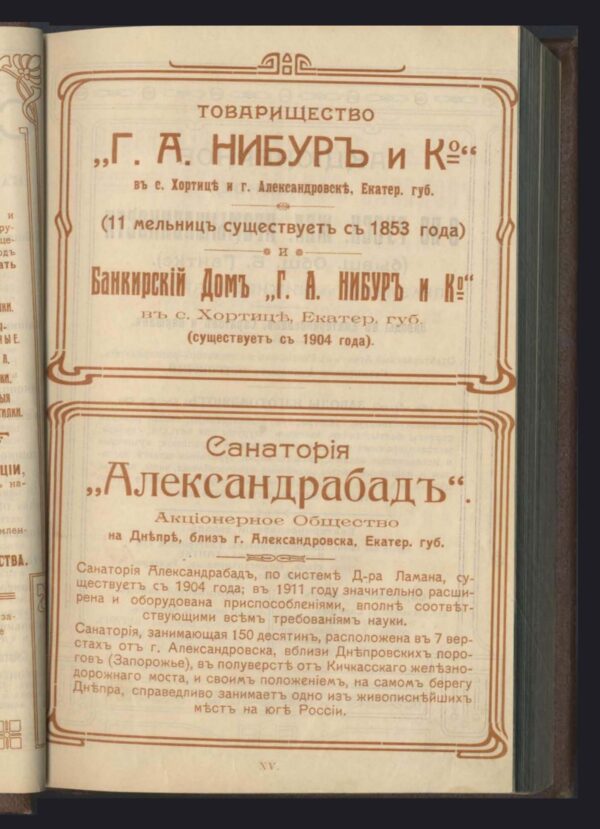 ТОВАРИЩЕСТВО
„Г. А. НИБУРЪ и Ко“
въ с. Хортицѣ и г. Александровскѣ, Екатер. губ.
(11 мельницъ существуетъ съ 1853 года)
И
Банкирскій Домъ „Г. А. НИБУРЪ и Ко“
въ с. Хортицѣ, Екатер. губ.
(существуетъ съ 1904 года).
Санаторія
„Александрабадъ“.
Акціонерное Общество
на Днѣпрѣ, близъ г. Александровска, Екатер. губ.
Санаторія Александрабадъ, по системѣ Д-ра Ламана, су-
ществуетъ съ 1904 года; въ 1911 году значительно расши-
рена и оборудована приспособленіями, вполнѣ соотвѣт-
ствующими всѣмъ требованіямъ науки.
Санаторія, занимающая 150 десятинъ, расположена въ 7 вер-
стахъ отъ г. Александровска, вблизи Днѣпровскихъ поро-
говъ (Запорожье), въ полуверстѣ отъ Кичкасскаго желѣзно-
дорожнаго моста, и своимъ положеніемъ, на самомъ берегу
Днѣпра, справедливо занимаетъ одно изъ живописнѣйшихъ
мѣстъ на югѣ Россіи.
XV.